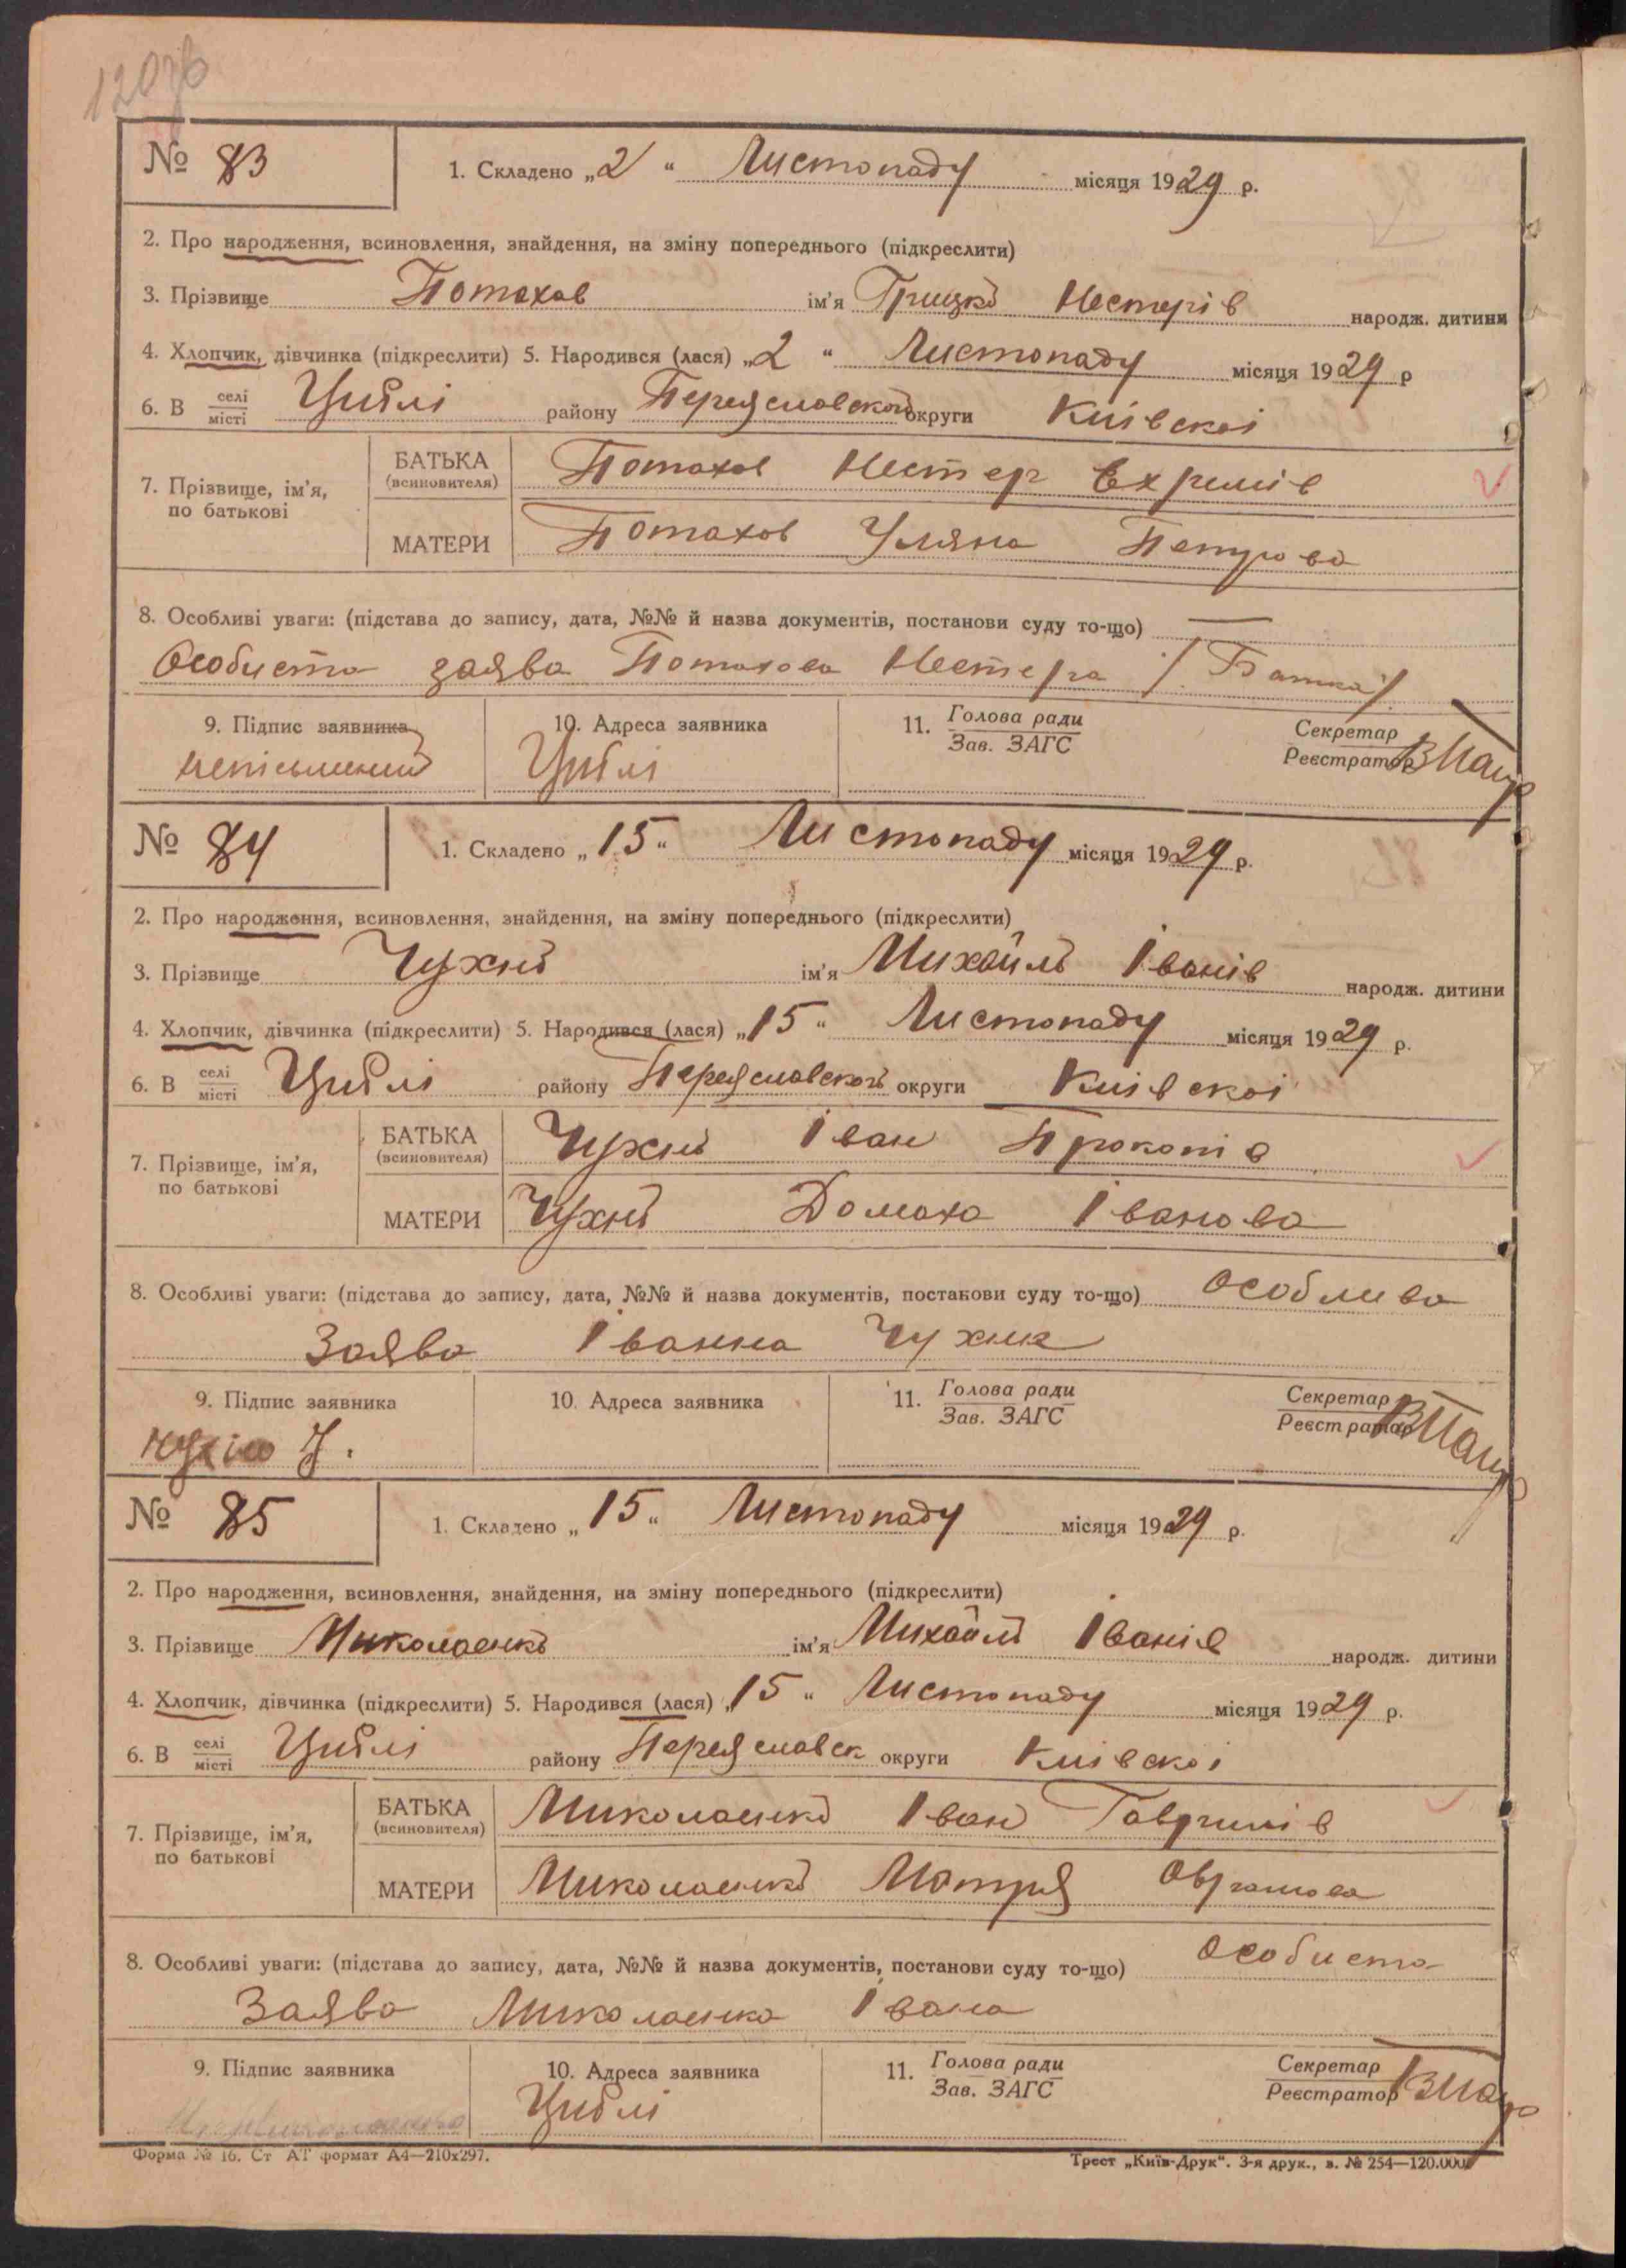 120зв
№ 83
1. Складено „2“ Листопаду місяця 1929 р.
2. Про народження, всиновлення, знайдення, на зміну попереднього (підкреслити)
3. Прізвище Потахов ім'я Грицко Нестерів народж. дитини
4. Хлопчик, дівчинка (підкреслити) 5. Народився (лася) „2“ Листопаду місяця 1929 р
6. В селі місті Циблі району Переяславскої округи Київскої
7. Прізвище, ім'я, по батькові
БАТЬКА (всиновителя) Потахов Нестер Єхремів
МАТЕРИ Потахов Уляна Петрова
8. Особливі уваги: (підстава до запису, дата, №№ й назва документів, постанови суду то-що)
Особиста заява Потахова Нестера /Батька/
9. Підпис заявника 10. Адреса заявника 11. Голова ради Зав. ЗАГС Секретар Реєстратор
непісьмений Циблі
№ 84
1. Складено „15“ Листопаду місяця 1929 р.
2. Про народження, всиновлення, знайдення, на зміну попереднього (підкреслити)
3. Прізвище Чухно ім'я Михайло Іванів народж. дитини
4. Хлопчик, дівчинка (підкреслити) 5. Народився (лася) „15“ Листопаду місяця 1929 р.
6. В селі місті Циблі району Переяславскої округи Київскої
7. Прізвище, ім'я, по батькові
БАТЬКА (всиновителя) Чухно Іван Прокопів
МАТЕРИ Чухно Домаха Іванова
8. Особливі уваги: (підстава до запису, дата, №№ й назва документів, постанови суду то-що) Особлива
Заява Іванна
9. Підпис заявника 10. Адреса заявника 11. Голова ради Зав. ЗАГС Секретар Реєстратор
№ 85
1. Складено „15“ Листопаду місяця 1929 р.
2. Про народження, всиновлення, знайдення, на зміну попереднього (підкреслити)
3. Прізвище Миколаенко ім'я Михайло Іванів народж. дитини
4. Хлопчик, дівчинка (підкреслити) 5. Народився (лася) „15“ Листопаду місяця 1929 р.
6. В селі місті Циблі району Переяславск округи Київскої
7. Прізвище, ім'я, по батькові
БАТЬКА (всиновителя) Миколаенко Іван Гаврилів
МАТЕРИ Миколаенко Мотря Оврамова
8. Особливі уваги: (підстава до запису, дата, №№ й назва документів, постанови суду то-що) Особиста
Заява Миколаенка Івана
9. Підпис заявника 10. Адреса заявника 11. Голова ради Зав. ЗАГС Секретар Реєстратор
Циблі
Форма № 16. Ст АТ формат А4—210х297.
Трест „Київ-Друк“. 3-я друк., в. № 254—120.000